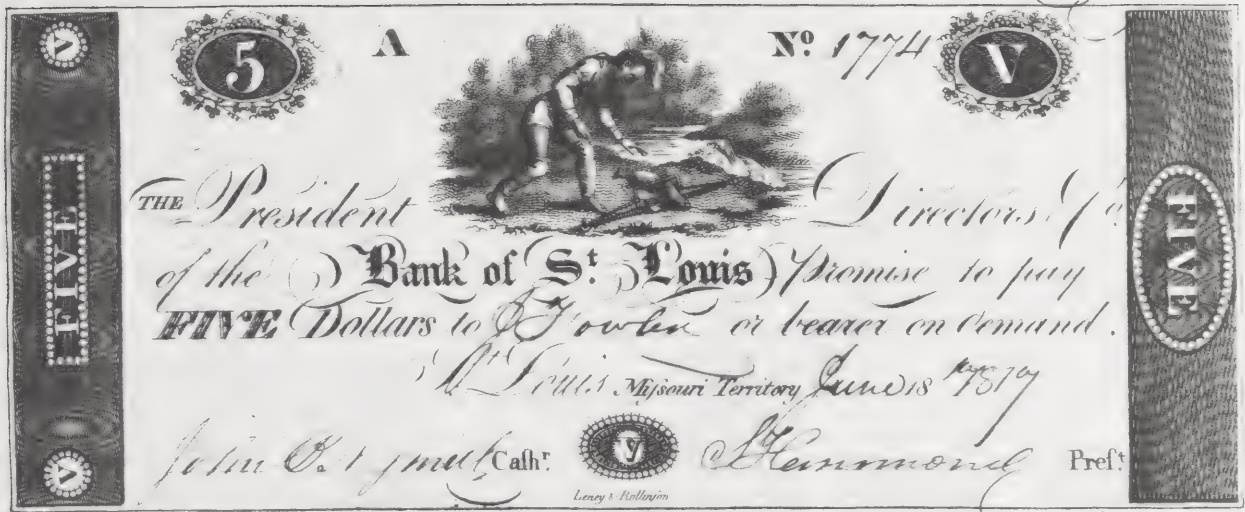 5 A Nº 1774 V
THE President Directors & Cº
of the Bank of Sᵗ Louis promise to pay
FIVE Dollars to J Fowler or bearer on demand.
Sᵗ Louis Missouri Territory June 18 1817
John B. N. Smith Caſhʳ. V S Hammond Preſᵗ
Leney & Rollinson
V
FIVE
V
FIVE